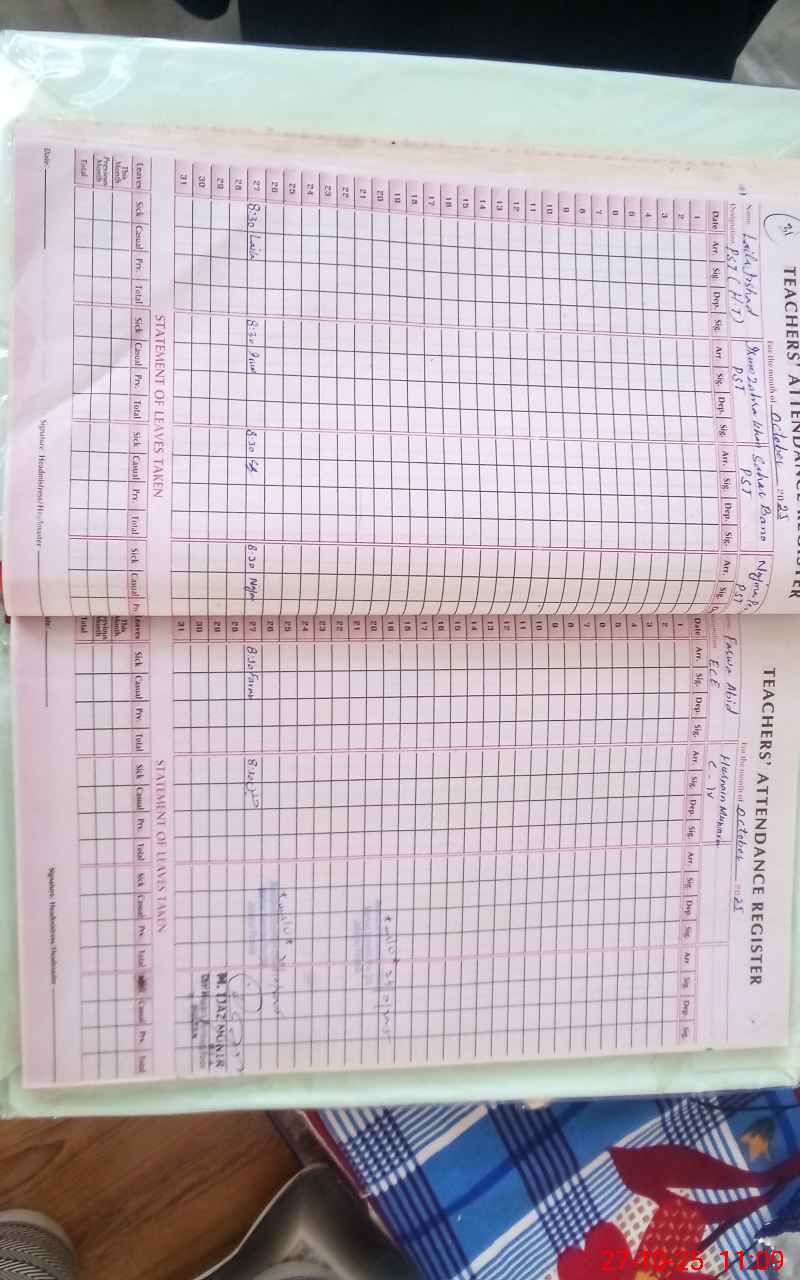 31
TEACHERS' ATTENDANCE REGISTER
For the month of October 2025
Name Laila Irshad
Sahar Bano
Najma
Designation PST (H.T) PST PST PST
Date Arr. Sig. Dep. Sig. Arr. Sig. Dep. Sig. Arr. Sig. Dep. Sig. Arr. Sig.
1
2
3
4
5
6
7
8
9
10
11
12
13
14
15
16
17
18
19
20
21
22
23
24
25
26
27 8:30 Laila 8:30 8:30 8:30 Najma
28
29
30
31
STATEMENT OF LEAVES TAKEN
Leaves Sick Casual Prv. Total Sick Casual Prv. Total Sick Casual Prv. Total Sick Casual Prv.
This Month
Previous Month
Total
Date: Signature: Headmistress/Headmaster
TEACHERS' ATTENDANCE REGISTER
For the month of October 2025
Farwa Abid
ECE C-IV
Date Arr. Sig. Dep. Sig. Arr. Sig. Dep. Sig. Arr. Sig. Dep. Sig. Arr. Sig. Dep. Sig.
1
2
3
4
5
6
7
8
9
10
11
12
13
14
15
16
17
18
19
20
21
22
23
24
25
26
27 8:30 Farwa 8:30
28
29
30
31
M. IJAZ MUNIR
STATEMENT OF LEAVES TAKEN
Leaves Sick Casual Prv. Total Sick Casual Prv. Total Sick Casual Prv. Total Sick Casual Prv. Total
This Month
Previous Month
Total
Signature: Headmistress/Headmaster
27-10-25 11:09